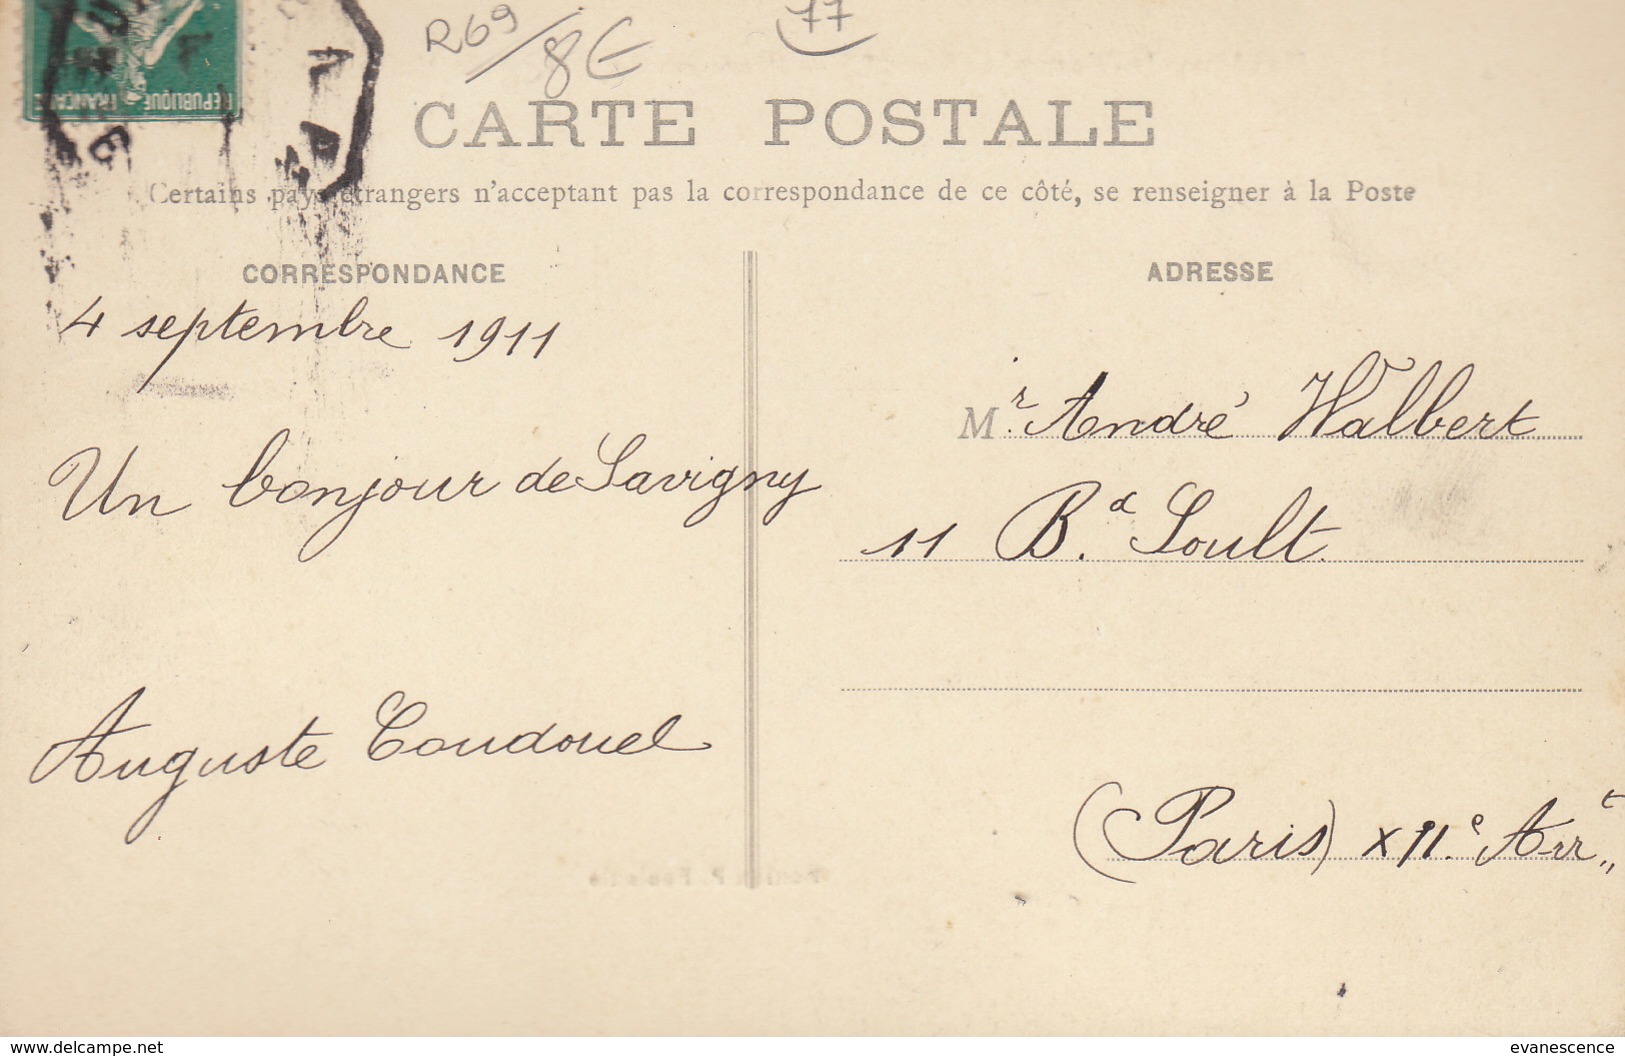 R69/8€
77
RÉPUBLIQUE FRANÇAISE
CARTE POSTALE
Certains pays étrangers n'acceptant pas la correspondance de ce côté, se renseigner à la Poste
CORRESPONDANCE
4 septembre 1911
Un bonjour de Savigny
Auguste Coudouel
ADRESSE
Mr. André Walbert
11 Bd. Soult.
(Paris) XIIe. Arrt
www.delcampe.net
evanescence